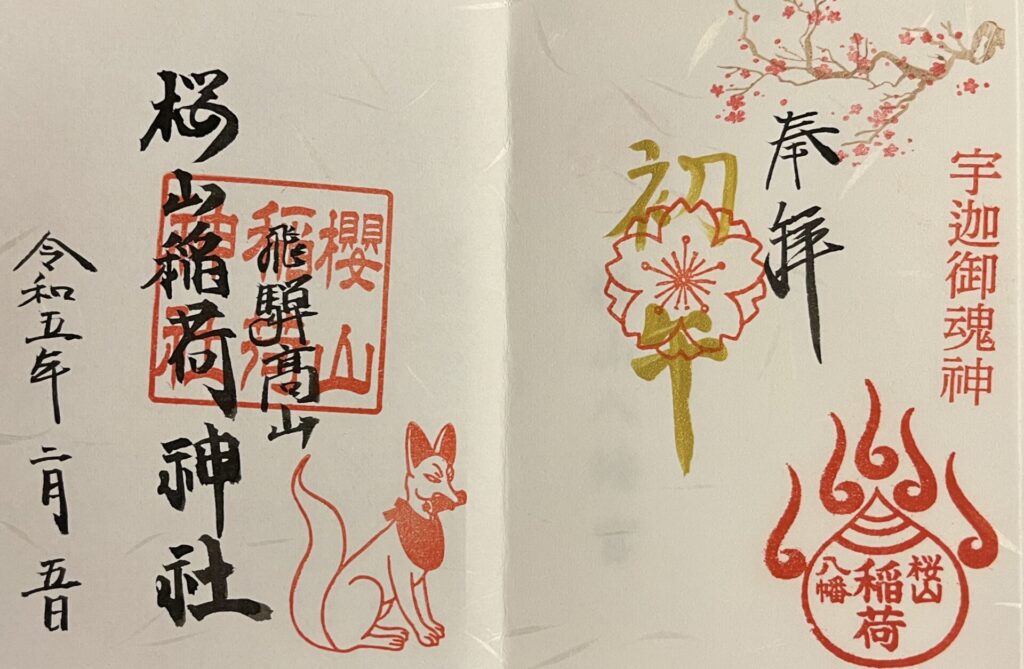 宇迦御魂神
奉拝
初午
桜山
稲荷
八幡
櫻山
稲荷
神社
飛騨髙山
桜山稲荷神社
令和五年二月五日